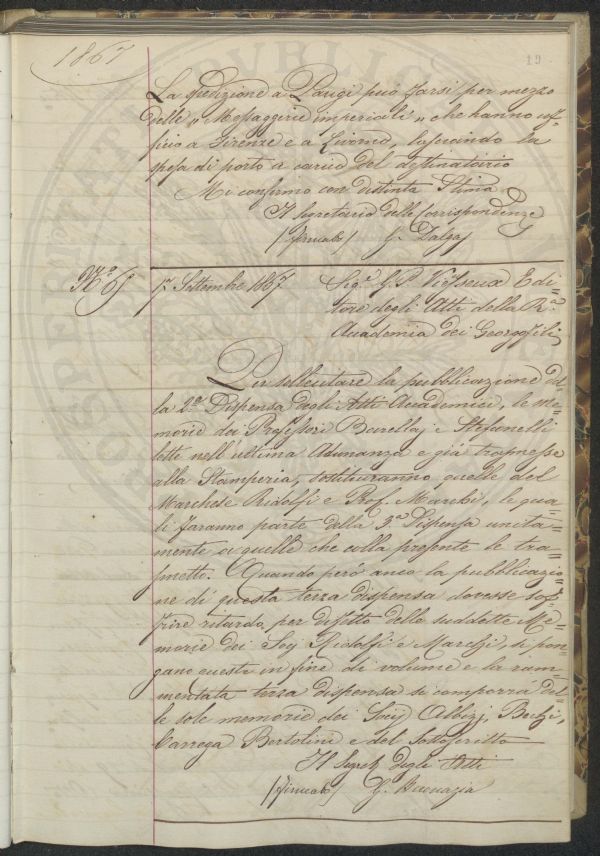 1867
19
La spedizione a Parigi può farsi per mezzo
delle "Messaggerie imperiali" che hanno uf=
ficio a Firenze e a Livorno, lasciando la
spesa di porto a carico del destinatario
Mi confermo con distinta Stima
Il Segretario delle Corrispondenze
(firmato) G. Dalgas
N.o 65
17 Settembre 1867
Sig.r G. P. Vieusseux Edi=
tore degli Atti della R.a
Accademia dei Georgofili
Per sollecitare la pubblicazione del=
la 2.a Dispensa degli Atti Accademici, le me=
morie dei Professori Barellaj e Stefanelli
lette nell'ultima Adunanza e già trasmesse
alla Stamperia, sostituiranno quelle del
Marchese Ridolfi e Prof. Marchi, le qua=
li faranno parte della 3.a Dispensa unita=
mente a quelle che colla presente le tra=
smetto. Quando però anco la pubblicazio=
ne di questa terza dispensa dovesse sof=
frire ritardo, per difetto delle suddette Me=
morie dei Socj Ridolfi e Marchi, si pon=
gano queste in fine di volume e la ram=
mentata terza dispensa si comporrà del=
le sole memorie dei Socij Albizj, Bechi,
Carrega Bertolini e del Sottoscritto
Il Segret. degli Atti
(firmato) G. Buonazia